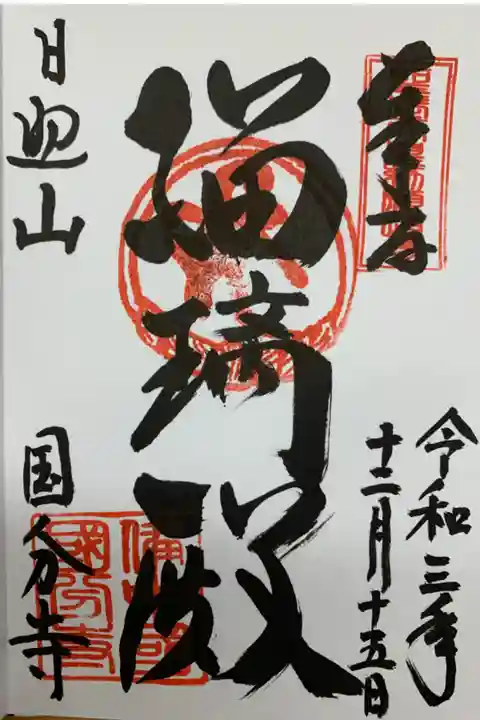 奉拝
令和三年
十二月十五日
瑠璃殿
日照山
国分寺
國分寺